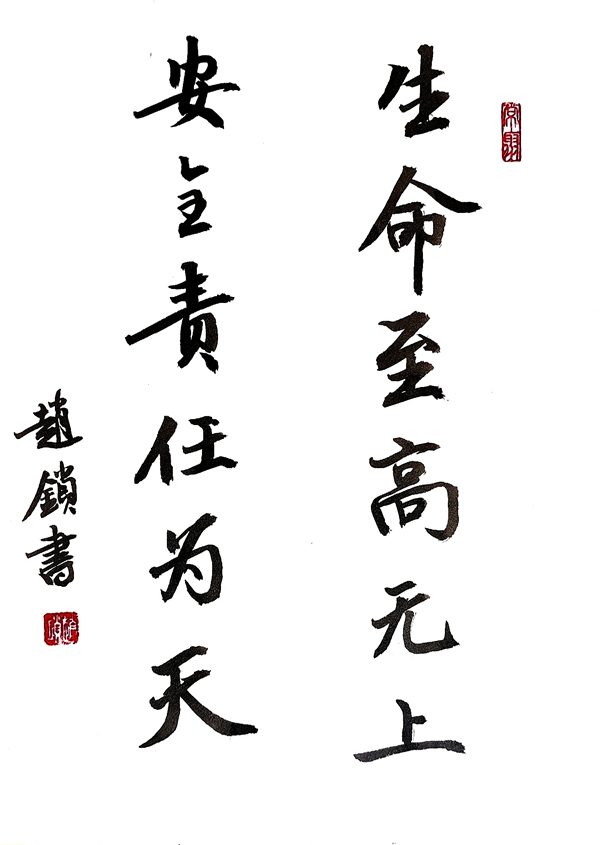 生命至高无上
安全责任为天
趙鎖書